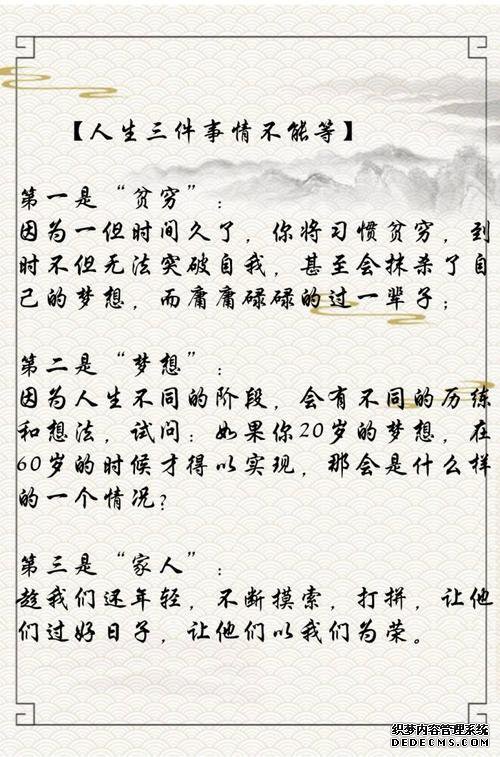 【人生三件事情不能等】
第一是“贫穷”:
因为一但时间久了, 你将习惯贫穷, 到
时不但无法突破自我, 甚至会抹杀了自
己的梦想, 而庸庸碌碌的过一辈子;
第二是“梦想”:
因为人生不同的阶段, 会有不同的历练
和想法, 试问: 如果你20岁的梦想, 在
60岁的时候才得以实现, 那会是什么样
的一个情况?
第三是“家人”:
趁我们还年轻, 不断摸索, 打拼, 让他
们过好日子, 让他们以我们为荣。
织梦内容管理系统
DEDECMS.COM